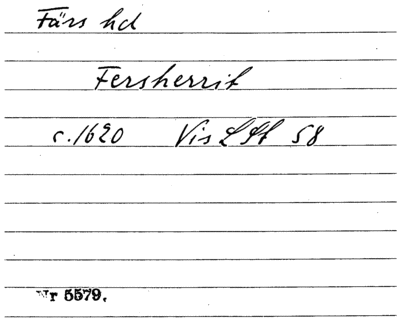 Färs hd
Fersherrit
c. 1620 Vis LSt 58
Nr 5579.